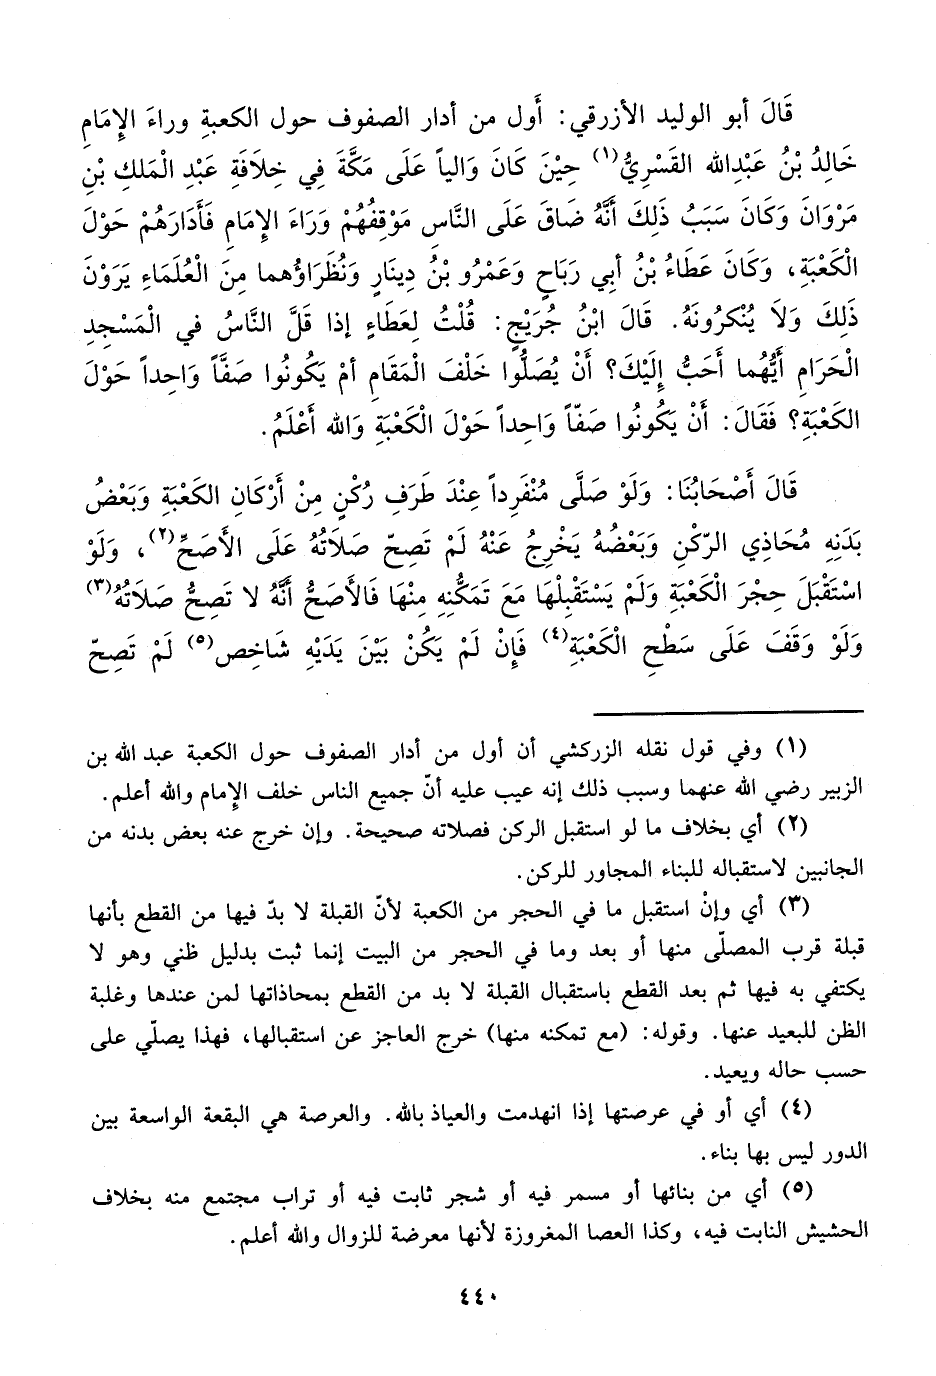 قَالَ أبو الوليد الأزرقي: أَول من أدار الصفوف حول الكعبةِ وراءَ الإِمَامِ
خَالِدُ بْنُ عَبْدِالله القَسْرِيُّ(١) حِيْنَ كَانَ وَالياً عَلَى مَكَّةَ فِي خِلَافَةِ عَبْدِ الْمَلكِ بْنِ
مَرْوَانَ وَكَانَ سَبَبُ ذَلِكَ أَنَّهُ ضَاقَ عَلَى النَّاسِ مَوْقِفُهُمْ وَرَاءَ الإِمَامِ فَأَدَارَهُمْ حَوْلَ
الْكَعْبَةِ، وَكَانَ عَطَاءُ بْنُ أبي رَبَاحٍ وَعَمْرُو بْنُ دِينَارٍ وَنُظَرَاؤُهما مِنَ الْعُلَمَاءِ يَرَوْنَ
ذَلِكَ وَلَا يُنْكِرُونَهُ. قَالَ ابْنُ جُرَيْجٍ: قُلْتُ لِعَطَاءٍ إذا قَلَّ النَّاسُ في الْمَسْجِدِ
الْحَرَامِ أَيُّهُما أَحَبُّ إِلَيْكَ؟ أَنْ يُصَلُّوا خَلْفَ الْمَقَامِ أمْ يَكُونُوا صَفَّاً وَاحِداً حَوْلَ
الكَعْبَةِ؟ فَقَالَ: أَنْ يَكُونُوا صَفّاً وَاحِداً حَوْلَ الْكَعْبَةِ وَالله أَعْلَمُ.
قَالَ أَصْحَابُنَا: وَلَوْ صَلَّى مُنْفَرِداً عِنْدَ طَرَفِ رُكْنٍ مِنْ أَرْكَانِ الكَعْبَةِ وَبَعْضُ
بَدَنِهِ مُحَاذِي الرّكْنِ وَبَعْضُهُ يَخْرِجُ عَنْهُ لَمْ تَصِحّ صَلَاتُهُ عَلَى الأَصَحِّ(٢)، وَلَوْ
اسْتَقْبَلَ حِجْرَ الْكَعْبَةِ وَلَمْ يَسْتَقْبِلْهَا مَعَ تَمَكُّنِهِ مِنْهَا فَالأَصَحُّ أنَّهُ لا تَصِحُّ صَلَاتُهُ(٣)
وَلَوْ وَقَفَ عَلَى سَطْحِ الْكَعْبَةِ(٤) فَإِنْ لَمْ يَكُنْ بَيْنَ يَدَيْهِ شَاخِص(٥) لَمْ تَصِحّ
(١) وفي قول نقله الزركشي أن أول من أدار الصفوف حول الكعبة عبد الله بن
الزبير رضي الله عنهما وسبب ذلك إنه عيب عليه أنّ جميع الناس خلف الإمام والله أعلم.
(٢) أي بخلاف ما لو استقبل الركن فصلاته صحيحة. وإن خرج عنه بعض بدنه من
الجانبين لاستقباله للبناء المجاور للركن.
(٣) أي وإنْ استقبل ما في الحجر من الكعبة لأنّ القبلة لا بدّ فيها من القطع بأنها
قبلة قرب المصلّى منها أو بعد وما في الحجر من البيت إنما ثبت بدليل ظني وهو لا
يكتفي به فيها ثم بعد القطع باستقبال القبلة لا بد من القطع بمحاذاتها لمن عندها وغلبة
الظن للبعيد عنها. وقوله: (مع تمكنه منها) خرج العاجز عن استقبالها، فهذا يصلّي على
حسب حاله ويعيد.
(٤) أي أو في عرصتها إذا انهدمت والعياذ بالله. والعرصة هي البقعة الواسعة بين
الدور ليس بها بناء.
(٥) أي من بنائها أو مسمر فيه أو شجر ثابت فيه أو تراب مجتمع منه بخلاف
الحشيش النابت فيه، وكذا العصا المغروزة لأنها معرضة للزوال والله أعلم.
٤٤٠